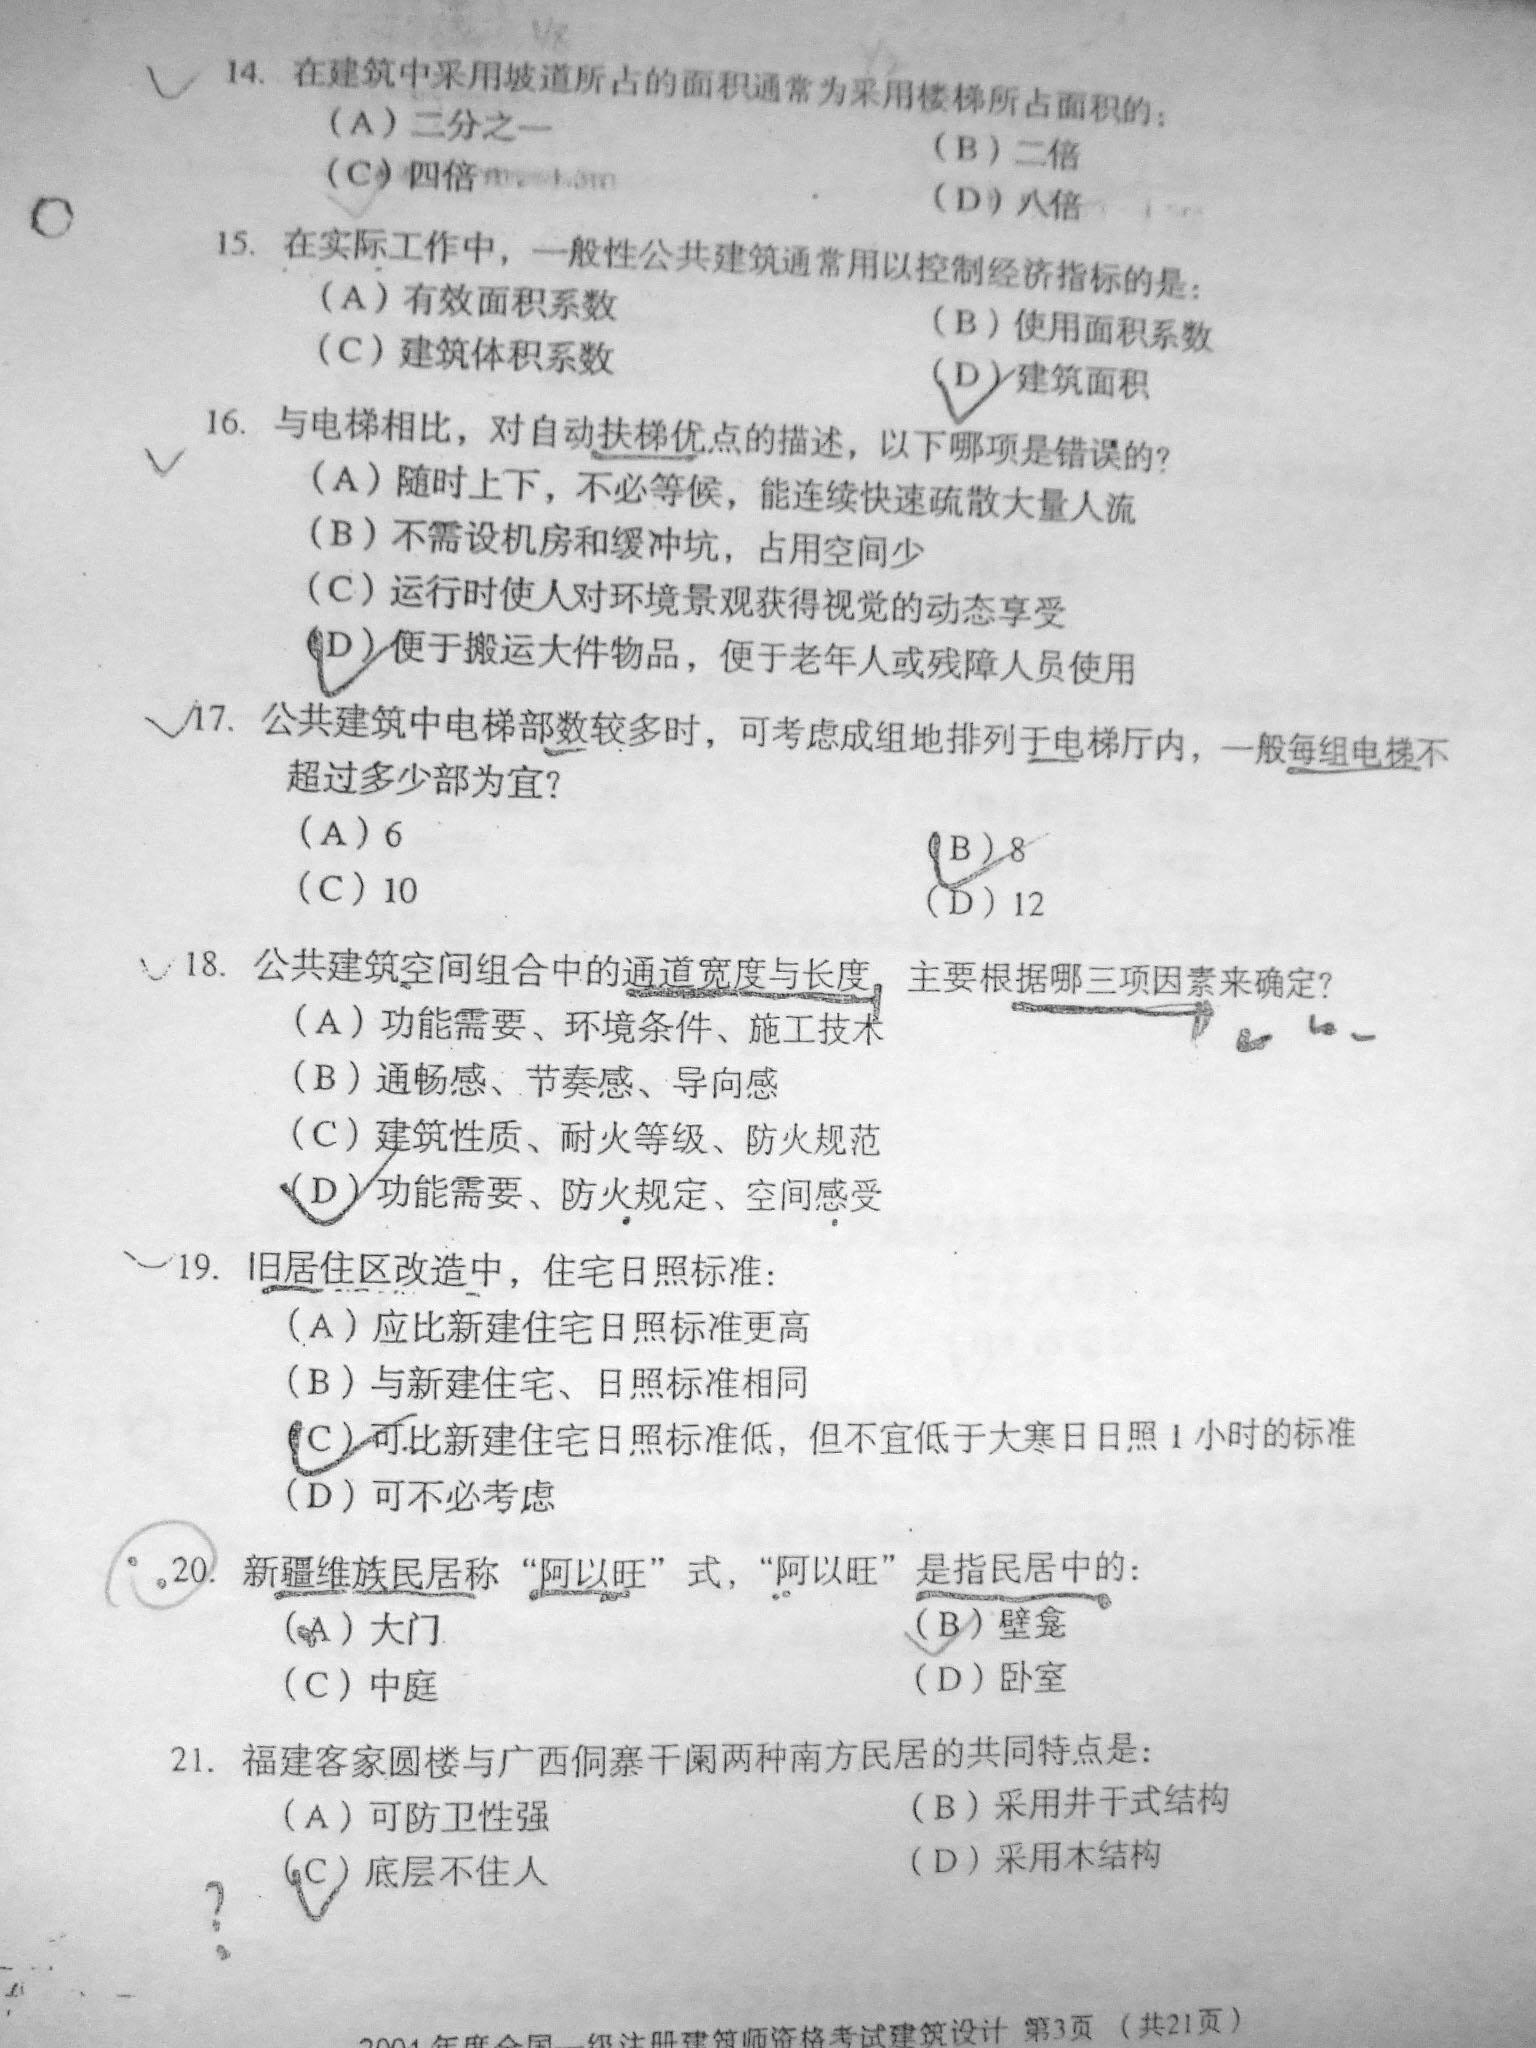 14. 在建筑中采用坡道所占的面积通常为采用楼梯所占面积的：
（A）二分之一
（B）二倍
（C）四倍
（D）八倍
15. 在实际工作中，一般性公共建筑通常用以控制经济指标的是：
（A）有效面积系数
（B）使用面积系数
（C）建筑体积系数
（D）建筑面积
16. 与电梯相比，对自动扶梯优点的描述，以下哪项是错误的？
（A）随时上下，不必等候，能连续快速疏散大量人流
（B）不需设机房和缓冲坑，占用空间少
（C）运行时使人对环境景观获得视觉的动态享受
（D）便于搬运大件物品，便于老年人或残障人员使用
17. 公共建筑中电梯部数较多时，可考虑成组地排列于电梯厅内，一般每组电梯不
超过多少部为宜？
（A）6
（B）8
（C）10
（D）12
18. 公共建筑空间组合中的通道宽度与长度，主要根据哪三项因素来确定？
（A）功能需要、环境条件、施工技术
（B）通畅感、节奏感、导向感
（C）建筑性质、耐火等级、防火规范
（D）功能需要、防火规定、空间感受
19. 旧居住区改造中，住宅日照标准：
（A）应比新建住宅日照标准更高
（B）与新建住宅、日照标准相同
（C）可比新建住宅日照标准低，但不宜低于大寒日日照1小时的标准
（D）可不必考虑
20. 新疆维族民居称“阿以旺”式，“阿以旺”是指民居中的：
（A）大门
（B）壁龛
（C）中庭
（D）卧室
21. 福建客家圆楼与广西侗寨干阑两种南方民居的共同特点是：
（A）可防卫性强
（B）采用井干式结构
（C）底层不住人
（D）采用木结构
?
年度全国一级注册建筑师资格考试建筑设计 第3页 （共21页）